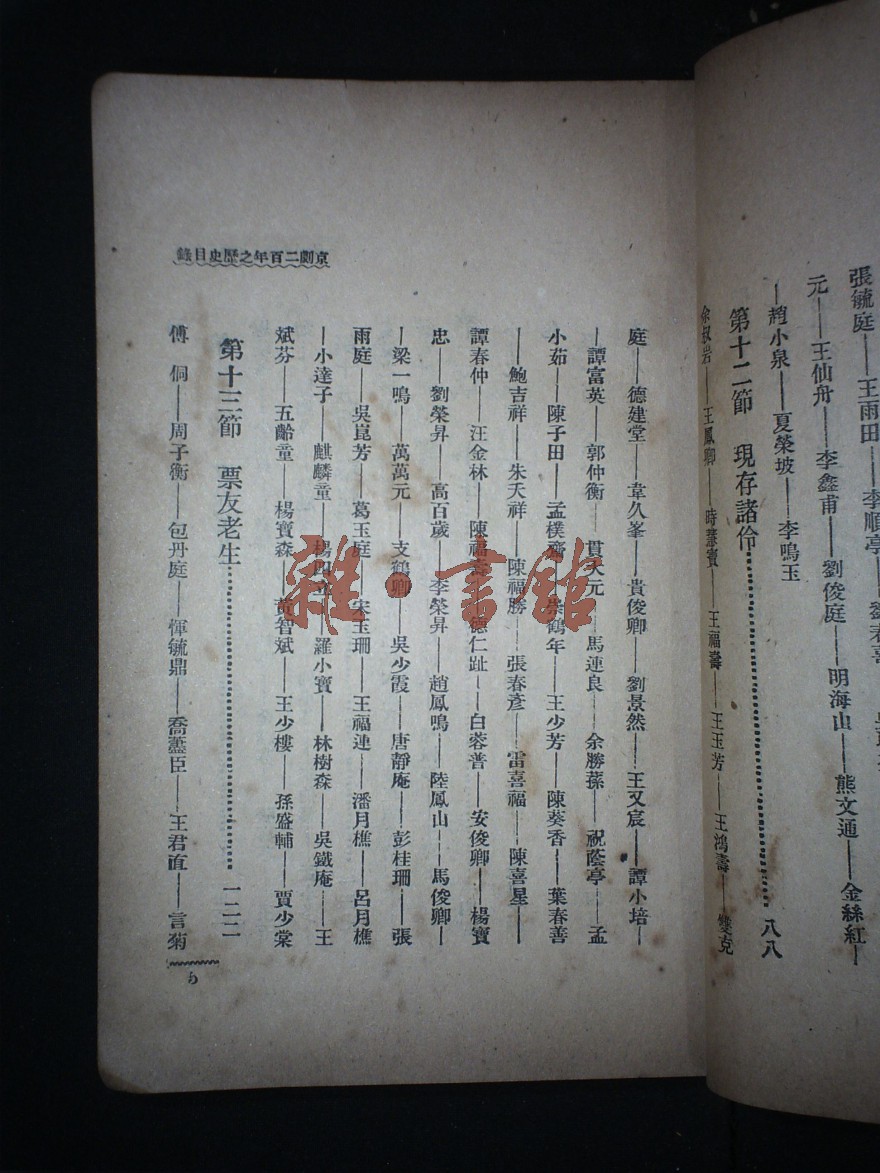 張毓庭——王雨田——李順亭
元——王仙舟——李鑫甫——劉俊庭——明海山——熊文通——金絲紅—
—趙小泉——夏榮坡——李鳴玉
第十二節 現存諸伶 八八
余叔岩——王鳳卿——時慧寶——王福壽——王玉芳——王鴻壽——雙克
京劇二百年之歷史目錄
庭——德建堂——韋久峯——貴俊卿——劉景然——王又宸——譚小培—
—譚富英——郭仲衡——貫大元——馬連良——余勝蓀——祝蔭亭——孟
小茹——陳子田——孟樸齋——崇鶴年——王少芳——陳葵香——葉春善
——鮑吉祥——朱天祥——陳福勝——張春彥——雷喜福——陳喜星——
譚春仲——汪金林——陳福壽——德仁趾——白蓉普——安俊卿——楊寶
忠——劉榮昇——高百歲——李榮昇——趙鳳鳴——陸鳳山——馬俊卿—
—梁一鳴——萬萬元——支鶴卿——吳少霞——唐靜庵——彭桂珊——張
雨庭——吳崑芳——葛玉庭——宋玉珊——王福連——潘月樵——呂月樵
——小達子——麒麟童——楊四立——羅小寶——林樹森——吳鐵庵——王
斌芬——五齡童——楊寶森——黃智斌——王少樓——孫盛輔——賈少棠
第十三節 票友老生 一二二
傅侗——周子衡——包丹庭——惲毓鼎——喬藎臣——王君直——言菊
五
雜·書館